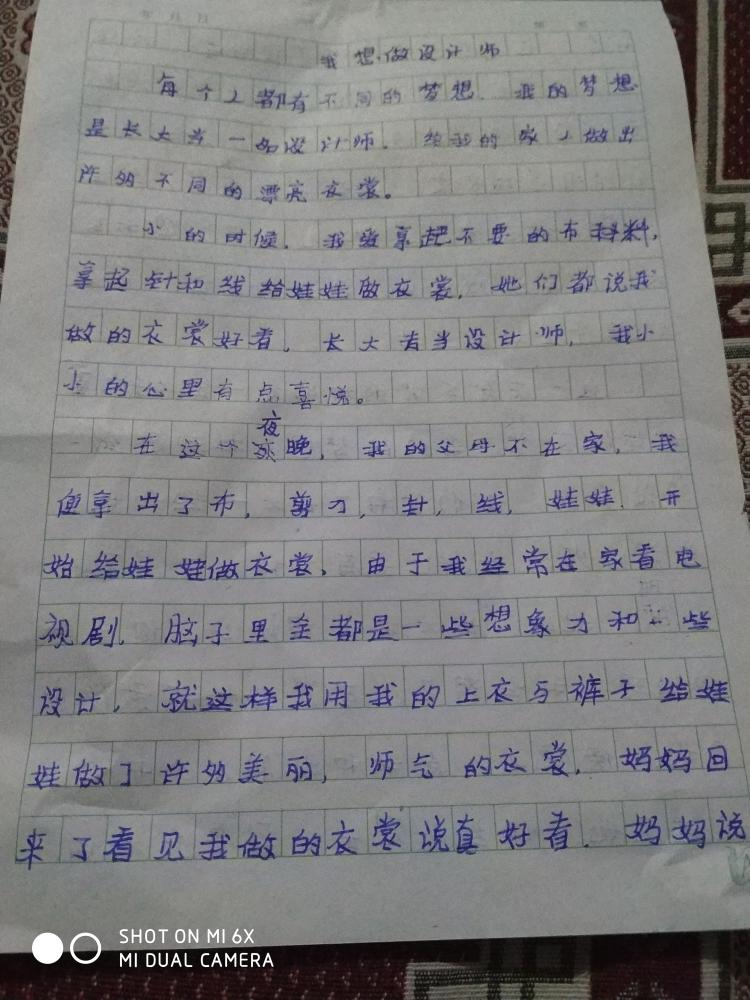 我想做设计师
每个人都有不同的梦想。我的梦想
是长大当一名设计师。给我的家人做出
许多不同的漂亮衣裳。
小的时候,我发拿起不要的布料料,
拿起针和线给娃娃做衣裳,她们都说我
做的衣裳好看,长大去当设计师,我小
小的心里有点喜悦。
在这个夜晚,我的父母不在家,我
便拿出了布,剪刀,针,线,娃娃,开
始给娃娃做衣裳,由于我经常在家看电
视剧,脑子里全都是一些想象力和一些
设计,就这样我用我的上衣与裤子给娃
娃做了许多美丽,师气的衣裳,妈妈回
来了看见我做的衣裳说真好看。妈妈说
SHOT ON MI 6X
MI DUAL CAMERA